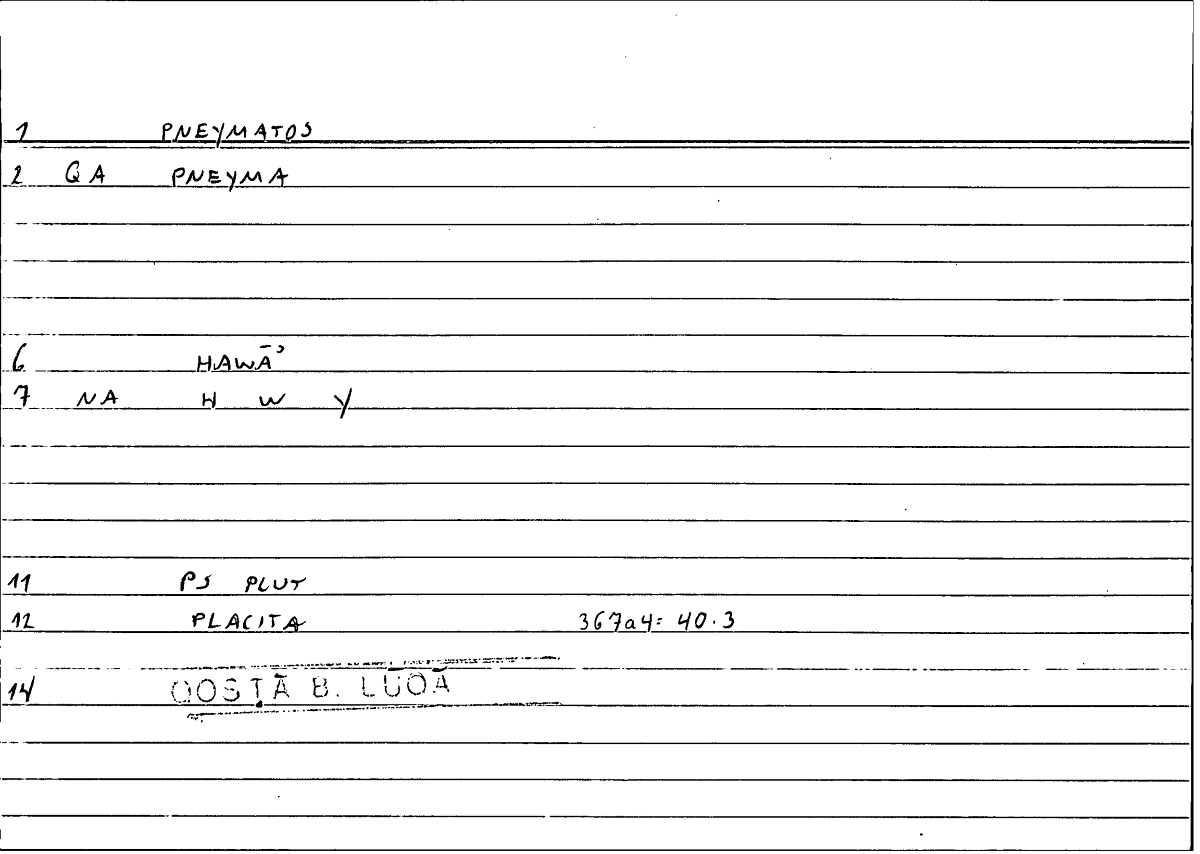 1 PNEYMATOS
2 QA PNEYMA
6 HAWĀʾ
7 NA H W Y
11 PS PLUT
12 PLACITA 367a4= 40.3
14 QOSṬĀ B. LŪQĀ